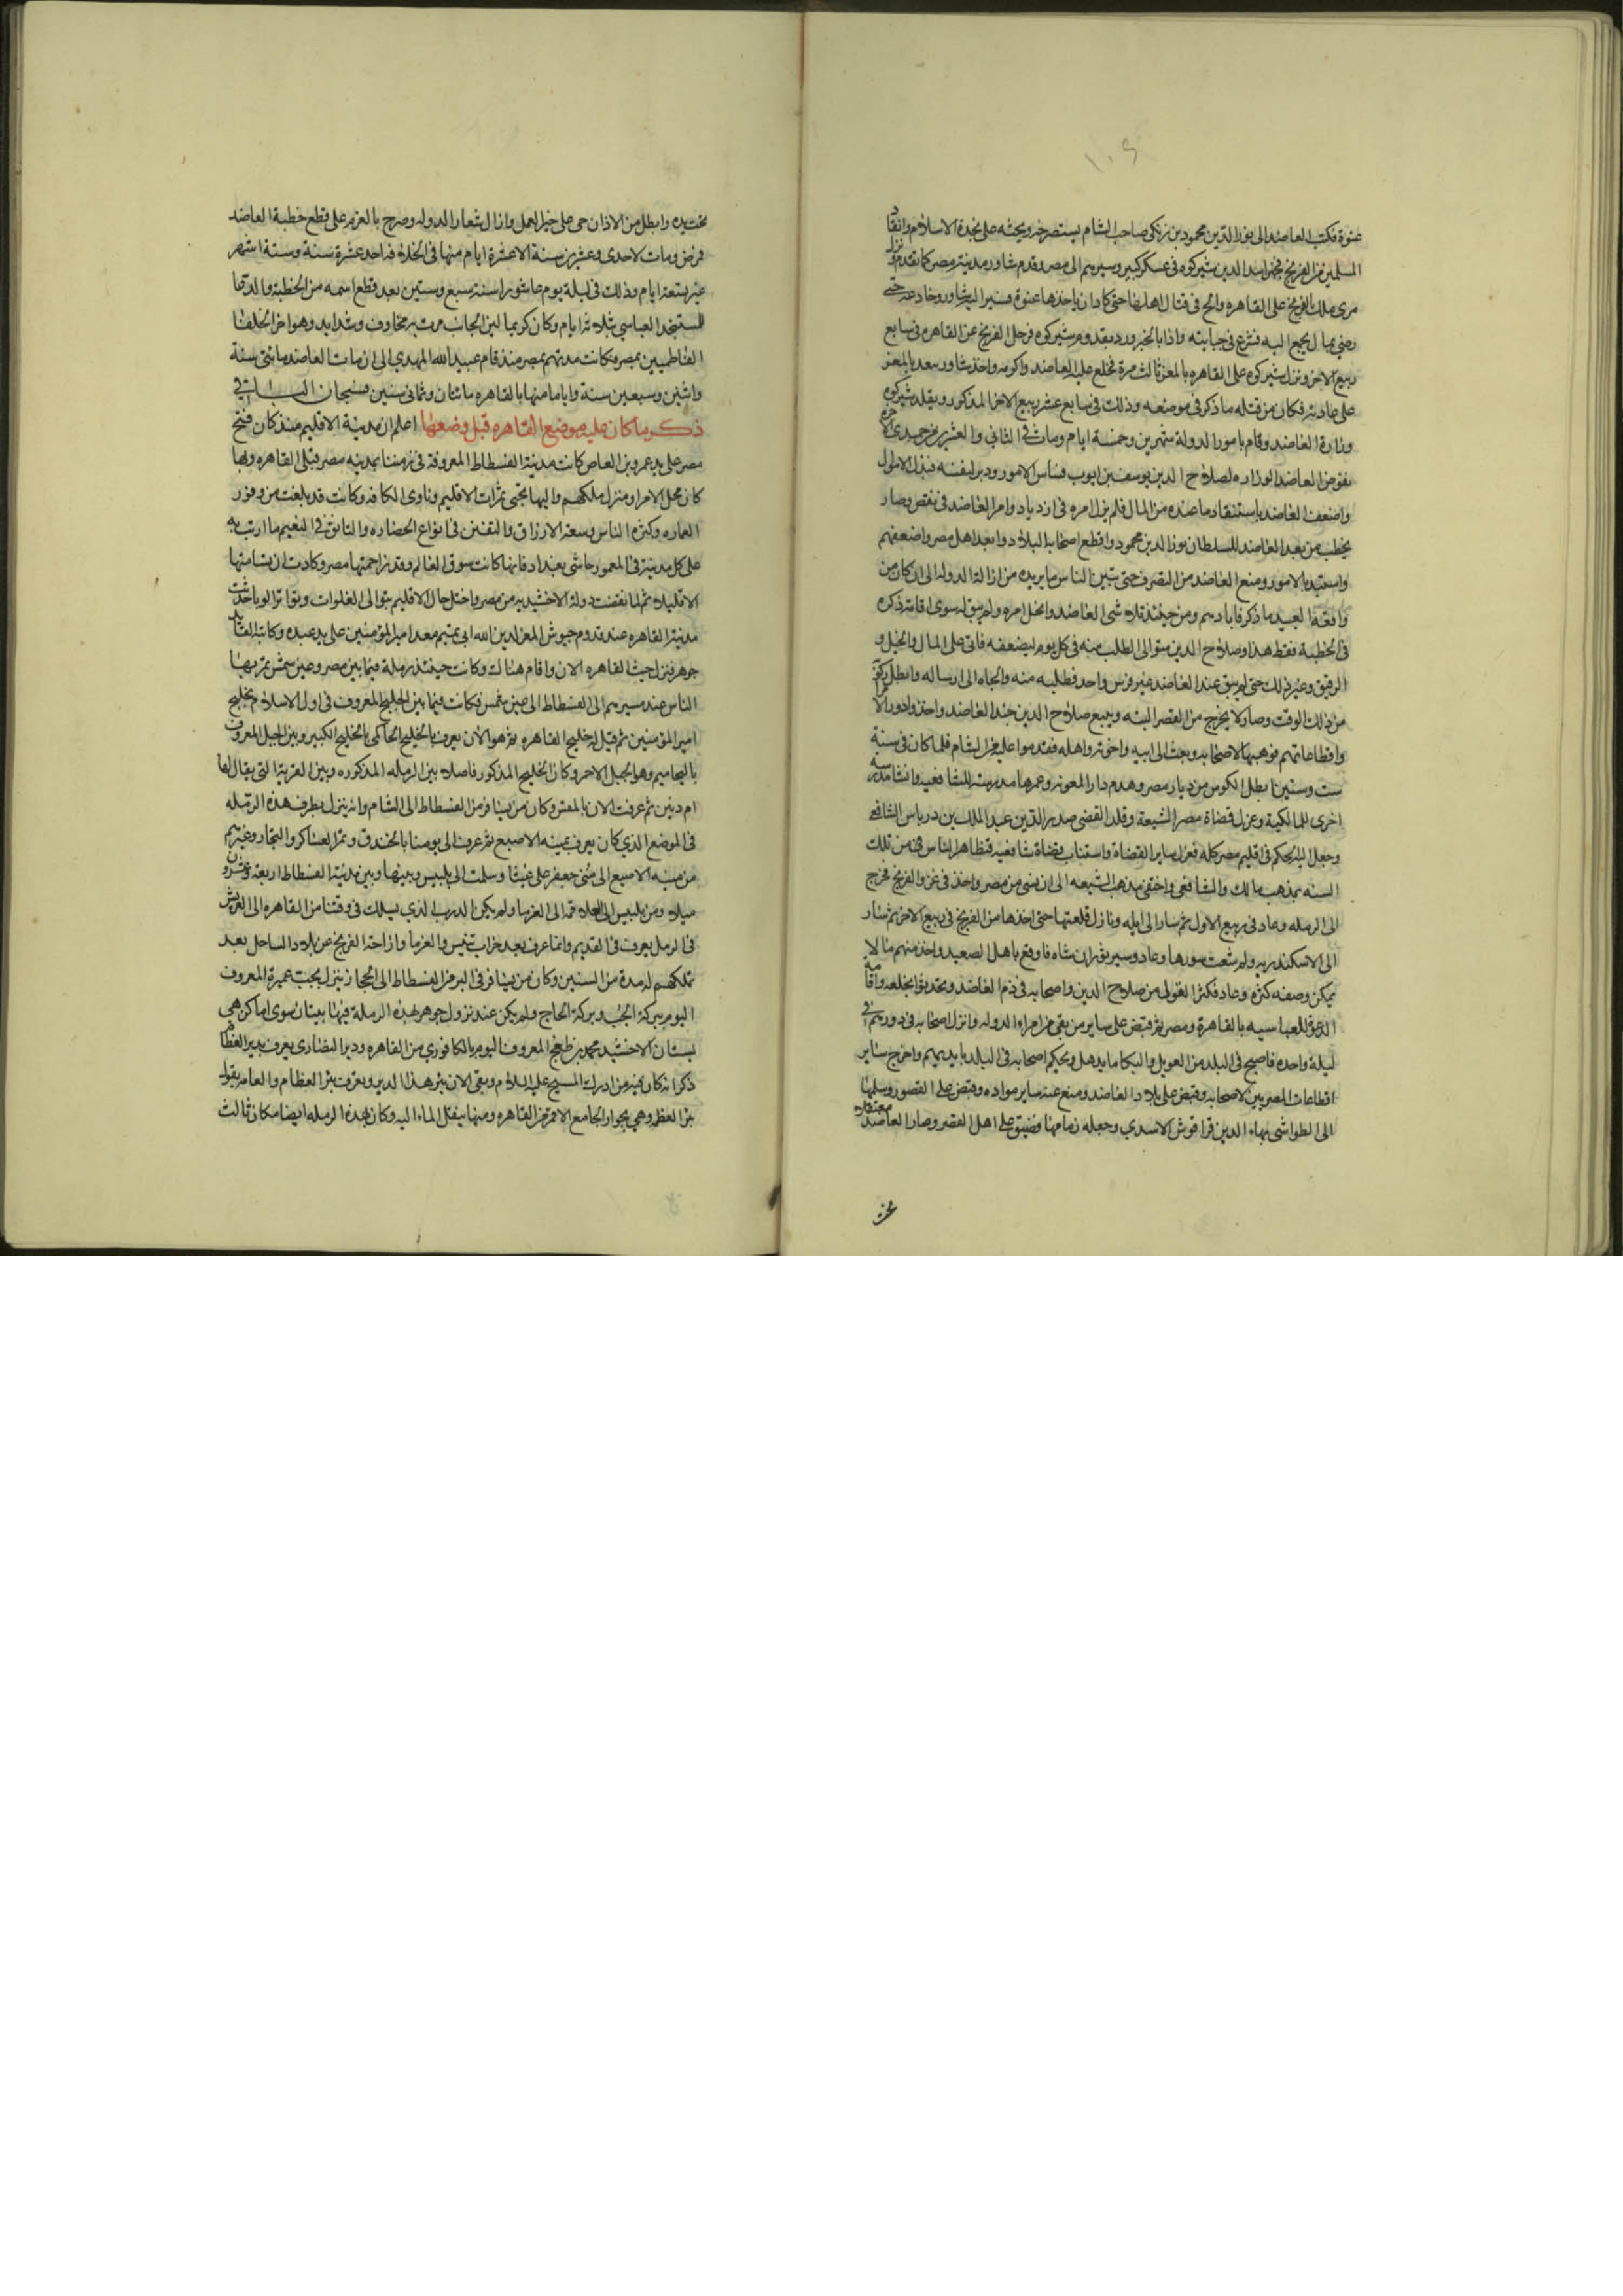 ١٠٩
عنوة فكتب العاضد الى نور الدين محمود بن زنكى صاحب الشام يستصرخه ويحثه على نجدة الاسلام وانقاذ
المسلمين من الفرنج فجهز اسد الدين شيركوه فى عسكر كبير وسيرهم الى مصر وقدم شاور مدينة مصر كما تقدم ونزل
مرى ملك الفرنج على القاهره والح فى قتال اهلها حتى كاد ان ياخذها عنوة فسير اليه شاور وخادعه حتى
رضى بمال يجمع اليه فشرع فى جبايته واذا بالخبر ورد بقدوم شيركوه فرحل الفرنج عن القاهره فى سابع
ربيع الاخر ونزل شيركوه على القاهره بالغز ثالث مرة فخلع عليه العاضد واكرمه واخذ شاور يعد بالغز
على عادته فكان من قتله ما ذكر فى موضعه وذلك فى سابع عشر ربيع الاخر المذكور وتقلد شيركوه
وزارة العاضد وقام بامور الدولة شهرين وخمسة ايام ومات فى الثانى والعشرين من جمدى الاخره
ففوض العاضد الوزاره لصلاح الدين يوسف بن ايوب فساس الامور ودبر لنفسه فبذل الاموال
واضعف العاضد باستنفاد ما عنده من المال فلم يزل امره فى ازدياد وامر العاضد فى نقص وصار
يخطب من بعد العاضد للسلطان نور الدين محمود واقطع اصحابه البلاد وابعد اهل مصر واضعفهم
واستبد بالامور ومنع العاضد من التصرف حتى تبين للناس ما يريده من ازالة الدوله الى ان كان من
واقعة العبيد ما ذكر فابادهم ومن حينئذ تلاشى العاضد وانحل امره ولم يبق له سوى اقامة ذكره
فى الخطبة فقط هذا وصلاح الدين يتوالى الطلب منه فى كل يوم ليضعفه فاتى على المال والخيل و
الرقيق وغير ذلك حتى لم يبق عند العاضد غير فرس واحد فطلبه منه والجاه الى ارساله وابطل ركوبه
من ذلك الوقت وصار لا يخرج من القصر البته وتتبع صلاح الدين جند العاضد واخذ دور الامرا
واقطاعاتهم فوهبها لاصحابه وبعث الى ابيه واخوته واهله فقدموا عليه من الشام فلما كان فى سنة
ست وستين ابطل المكوس من ديار مصر وهدم دار المعونه وعمرها مدرسة للشافعيه وانشا مدرسة
اخرى للمالكية وعزل قضاة مصر الشيعة وقلد القضى صدر الدين عبد الملك بن درباس الشافعى
وجعل اليه الحكم فى اقليم مصر كله فعزل ساير القضاة واستناب قضاة شافعيه فتظاهر الناس من تلك
السنه بمذهب مالك والشافعى واختفى مذهب الشيعه الى ان نسى من مصر واخذ فى غزو الفرنج فخرج
الى الرمله وعاد فى ربيع الاول ثم سار الى ايله ونازل قلعتها حتى اخذها من الفرنج فى ربيع الاخر ثم سار
الى الاسكندريه ولم شعث سورها وعاد وسير توران شاه فاوقع باهل الصعيد واخذ منهم ما لا
يمكن وصفه كثره وعاد فكثر القول من صلاح الدين واصحابه فى ذم العاضد وتحدثوا بخلعه واقامة
الدعوة للعباسيه بالقاهرة ومصر ثم قبض على ساير من بقى من امراء الدوله وانزل اصحابه فى دورهم فى
ليلة واحده فاصبح فى البلد من العويل والبكا ما يذهل وتحكم اصحابه فى البلد بايديهم واخرج ساير
اقطاعات المصريين لاصحابه وقبض على بلاد العاضد ومنع عنه ساير مواده وقبض على القصور وسلمها
الى الطواشى بهاء الدين قراقوش الاسدي وجعله زمامها وضيق على اهل القصر وصار العاضد معتقلا
تحت
تحت يده وابطل من الاذان حى على خير العمل وازال شعار الدوله وصرح بالعزم على قطع خطبة العاضد
فمرض ومات لاحدى وعشرين سنة الا عشرة ايام منها فى الخلافه احد عشرة سنة وستة اشهر
غير تسعة ايام وذلك فى ليلة يوم عاشورا سنة سبع وستين بعد قطع اسمه من الخطبة والدعا
للمستنجد العباسي بثلاثة ايام وكان كريما لين الجانب مرت به مخاوف وشدايد وهو اخر الخلفا
الفاطميين بمصر وكانت مدتهم بمصر منذ قام عبيد الله المهدي الى ان مات العاضد مائتى سنة
واثنين وسبعين سنة واياما منها بالقاهره مائتان وثمانى سنين فسبحان الباقي
ذكر ما كان عليه موضع القاهره قبل وضعها اعلم ان مدينة الاقليم منذ كان فتح
مصر على يد عمرو بن العاص كانت مدينة الفسطاط المعروفة فى زمننا بمدينه مصر قبلى القاهره وبها
كان محل الامرا ومنزل ملكهم واليها تجبى ثمرات الاقليم وتاوى الكافه وكانت قد بلغت من وفور
العماره وكثره الناس وسعة الارزاق والتفنن فى انواع الحضاره والتانق فى النعيم ما اربت به
على كل مدينة فى المعمور حاشى بغداد فانها كانت سوق العالم وقد زاحمتها مصر وكادت ان تساميها
الا قليلا ثم لما انقضت دولة الاخشيديه من مصر واختل حال الاقليم بتوالى الغلوات وتواتر الوبا حدثت
مدينة القاهره عند قدوم جيوش المعز لدين الله ابى تميم معد امير المؤمنين على يد عبده وكاتبه القايد
جوهر فنزل حيث القاهره الان واقام هنالك وكانت حينئذ رملة فيما بين مصر وعين شمس تمر بها
الناس عند مسيرهم الى الفسطاط الى عين شمس فكانت فيما بين الخليج المعروف فى اول الاسلام بخليج
امير المؤمنين ثم قيل له خليج القاهره ثم هو الان يعرف بالخليج الحاكمى بالخليج الكبير وبين الجبل المعروف
باليحاميم وهو الجبل الاحمر وكان الخليج المذكور فاصلا بين الرمله المذكوره وبين القرية التى يقال لها
ام دنين ثم عرفت الان بالمقس وكان من يسافر من الفسطاط الى الشام وانه ينزل بطرف هذه الرمله
فى الموضع الذي كان يعرف بمنيه الاصبع ثم عرف الى يومنا بالخندق وتمر العساكر والتجار وغيرهم
من منيه الاصبع الى منى جعفر على غيفا وسلمت الى بلبيس وبينها وبين مدينة الفسطاط اربعة وعشرون
ميلا ومن بلبيس الى العلاقمه الى الفرما ولم يكن الدرب الذي يسلك فى وقتنا من القاهره الى العريش
فى الرمل يعرف فى القديم وانما عرف بعد خراب تنيس والفرما وازاحة الفرنج عن بلاد الساحل بعد
تملكهم له مدة من السنين وكان من يسافر فى البر من الفسطاط الى الحجاز ينزل بجب عميرة المعروف
اليوم ببركة الجب وبركة الحاج ولم يكن عند نزول جوهر بهذه الرملة فيها بنيان سوى اماكن هى
بستان الاخشيد محمد بن طغج المعروف اليوم بالكافوري من القاهره ودير النصارى يعرف بدير العظام
ذكر انه كان بمن ادرك المسيح عليه السلام وبقى الان بئر هذا الدير وتعرف بئر العظام والعامه يقول
بئر العظمه وهي بجوار الجامع الاقمر من القاهره ومنها ينقل الماء اليه وكان بهذه الرمله ايضا مكان ثالث